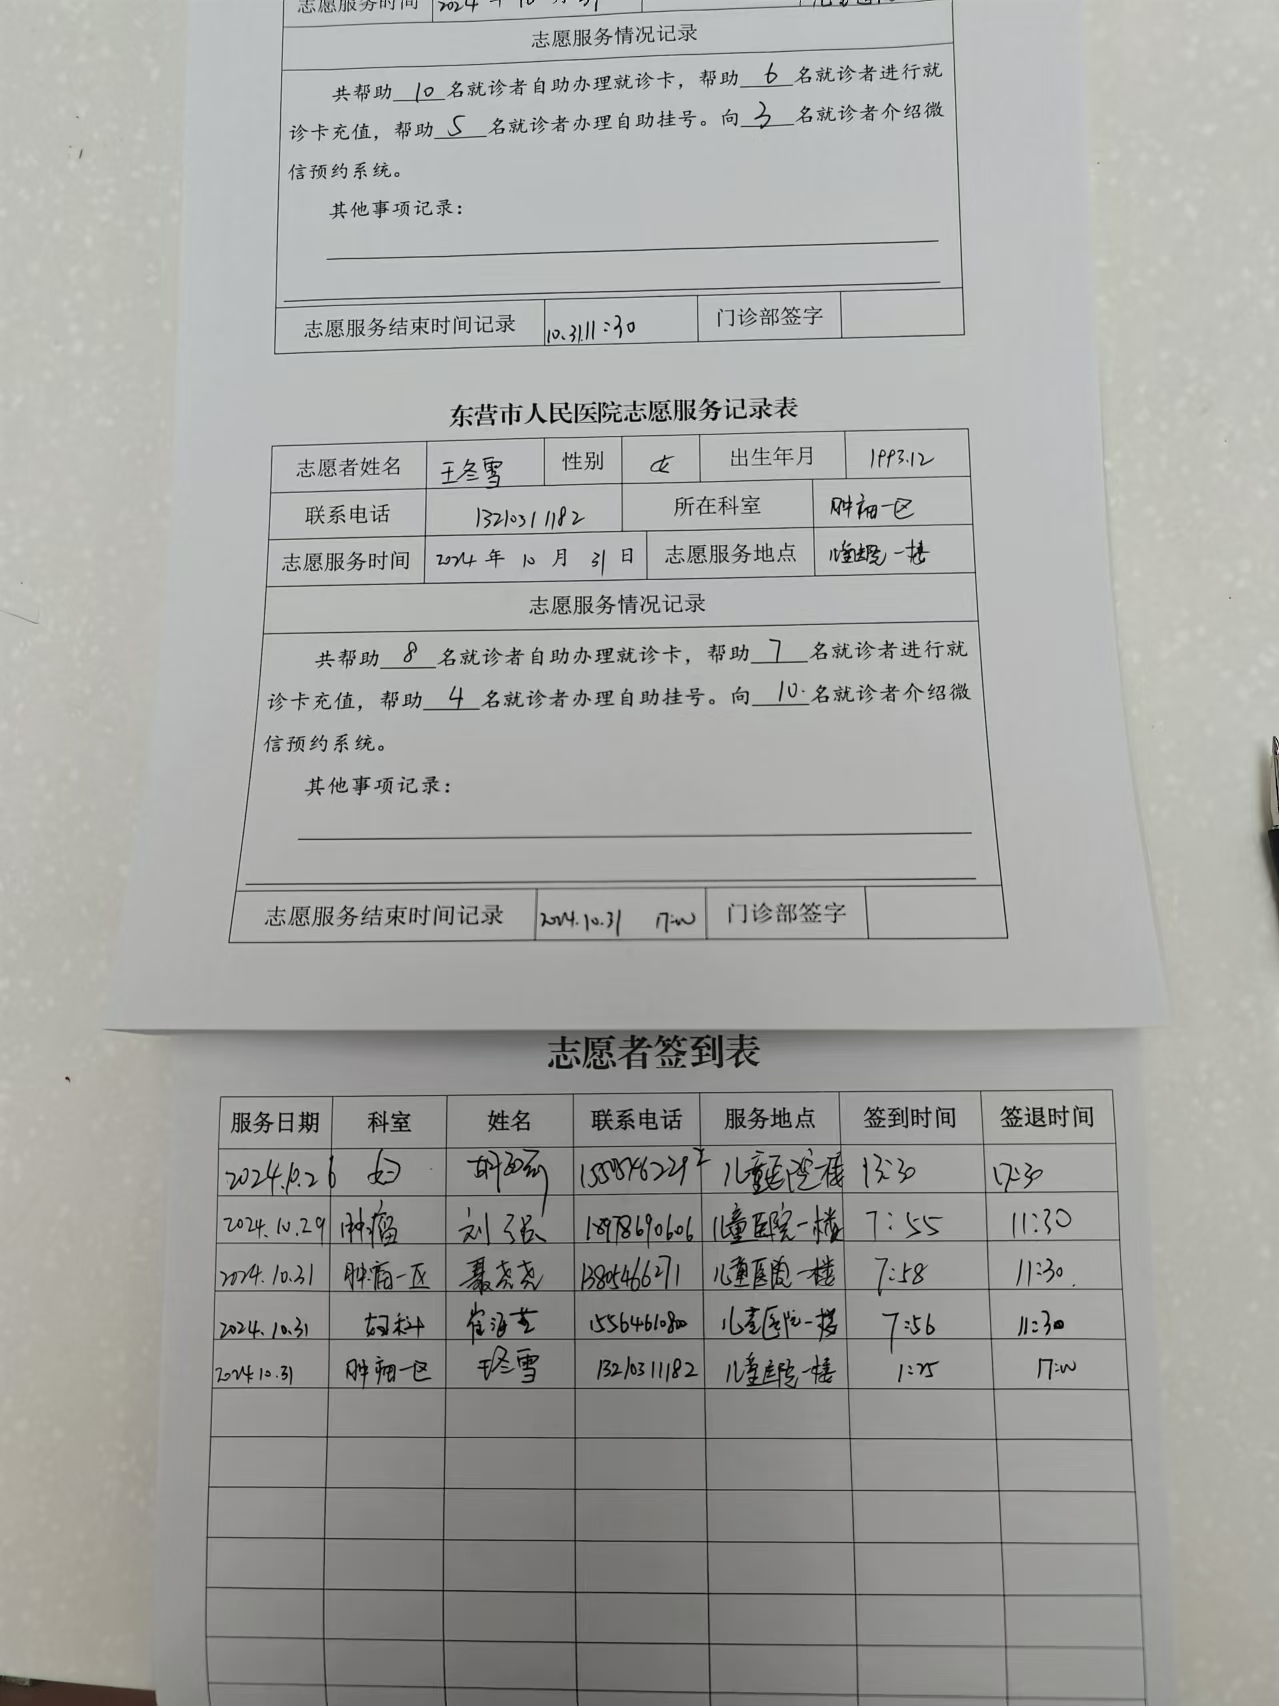 志愿服务时间 2024 年 10 月 31
志愿服务情况记录
共帮助 10 名就诊者自助办理就诊卡，帮助 6 名就诊者进行就
诊卡充值，帮助 5 名就诊者办理自助挂号。向 3 名就诊者介绍微
信预约系统。
其他事项记录：
志愿服务结束时间记录 10.31 11:30 门诊部签字
东营市人民医院志愿服务记录表
志愿者姓名 王冬雪 性别 女 出生年月 1993.12
联系电话 13210311182 所在科室 肿瘤一区
志愿服务时间 2024 年 10 月 31 日 志愿服务地点 儿童医院一楼
志愿服务情况记录
共帮助 8 名就诊者自助办理就诊卡，帮助 7 名就诊者进行就
诊卡充值，帮助 4 名就诊者办理自助挂号。向 10. 名就诊者介绍微
信预约系统。
其他事项记录：
志愿服务结束时间记录 2024.10.31 17:00 门诊部签字
志愿者签到表
服务日期 科室 姓名 联系电话 服务地点 签到时间 签退时间
2024.10.26 妇 儿童医院一楼 13:30 17:30
2024.10.29 肿瘤 刘强 18978690606 儿童医院一楼 7:55 11:30
2024.10.31 肿瘤一区 聂尧尧 13805466271 儿童医院一楼 7:58 11:30
2024.10.31 妇科 崔海芝 15564610800 儿童医院一楼 7:56 11:30
2024.10.31 肿瘤一区 王冬雪 13210311182 儿童医院一楼 1:25 17:00